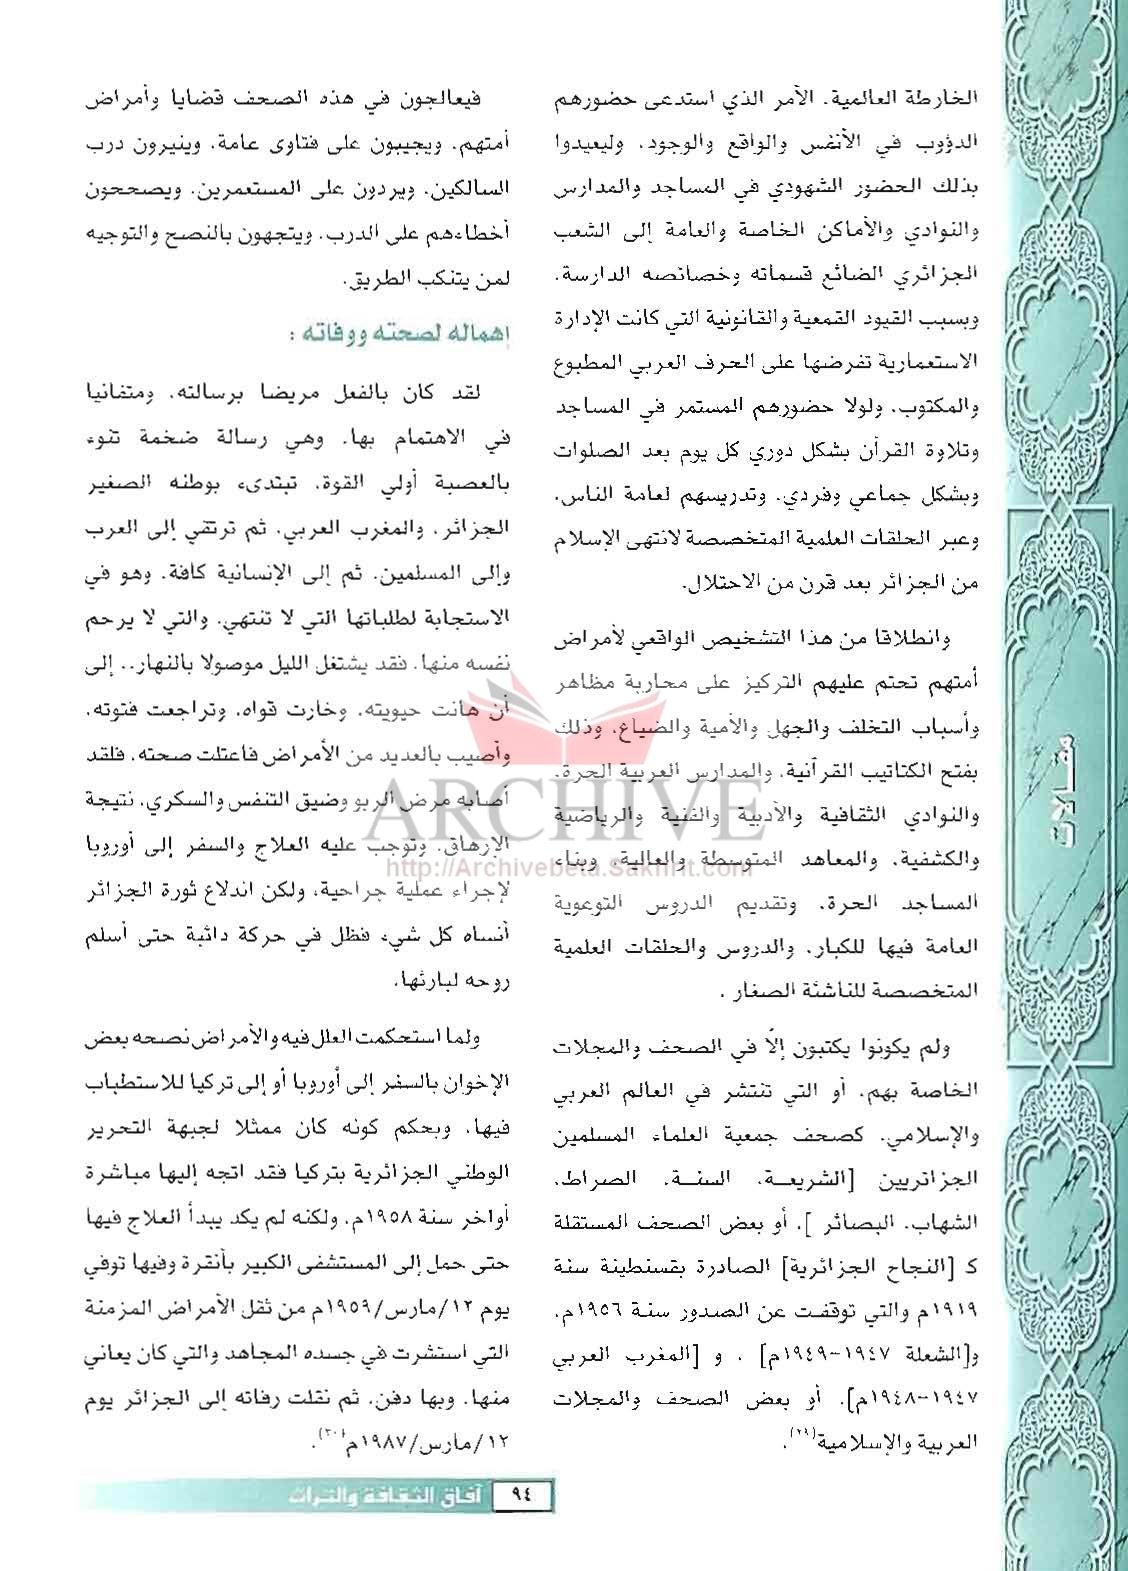 الخارطة العالمية. الأمر الذي استدعى حضورهم
الدؤوب في الأنفس والواقع والوجود. وليعيدوا
بذلك الحضور الشهودي في المساجد والمدارس
والنوادي والأماكن الخاصة والعامة إلى الشعب
الجزائري الضائع قسماته وخصائصه الدارسة.
وبسبب القيود القمعية والقانونية التي كانت الإدارة
الاستعمارية تفرضها على الحرف العربي المطبوع
والمكتوب. ولولا حضورهم المستمر في المساجد
وتلاوة القرآن بشكل دوري كل يوم بعد الصلوات
وبشكل جماعي وفردي. وتدريسهم لعامة الناس.
وعبر الحلقات العلمية المتخصصة لانتهى الإسلام
من الجزائر بعد قرن من الاحتلال.
وانطلاقا من هذا التشخيص الواقعي لأمراض
أمتهم تحتم عليهم التركيز على محاربة مظاهر
وأسباب التخلف والجهل والأمية والضياع. وذلك
بفتح الكتاتيب القرآنية. والمدارس العربية الحرة.
والنوادي الثقافية والأدبية والفنية والرياضية
والكشفية. والمعاهد المتوسطة والعالية. وبناء
المساجد الحرة. وتقديم الدروس التوعوية
العامة فيها للكبار. والدروس والحلقات العلمية
المتخصصة للناشئة الصغار .
ولم يكونوا يكتبون إلاّ في الصحف والمجلات
الخاصة بهم. أو التي تنتشر في العالم العربي
والإسلامي. كصحف جمعية العلماء المسلمين
الجزائريين [الشريعـة. السنـة. الصراط.
الشهاب. البصائر ]. أو بعض الصحف المستقلة
كـ [النجاح الجزائرية] الصادرة بقسنطينة سنة
١٩١٩م والتي توقفت عن الصدور سنة ١٩٥٦م.
و[الشعلة ١٩٤٧-١٩٤٩م] . و [المغرب العربي
١٩٤٧-١٩٤٨م]. أو بعض الصحف والمجلات
العربية والإسلامية(٢٩).
فيعالجون في هذه الصحف قضايا وأمراض
أمتهم. ويجيبون على فتاوى عامة. وينيرون درب
السالكين. ويردون على المستعمرين. ويصححون
أخطاءهم على الدرب. ويتجهون بالنصح والتوجيه
لمن يتنكب الطريق.
إهماله لصحته ووفاته :
لقد كان بالفعل مريضا برسالته. ومتفانيا
في الاهتمام بها. وهي رسالة ضخمة تنوء
بالعصبة أولي القوة. تبتدىء بوطنه الصغير
الجزائر. والمغرب العربي. ثم ترتقي إلى العرب
وإلى المسلمين. ثم إلى الإنسانية كافة. وهو في
الاستجابة لطلباتها التي لا تنتهي. والتي لا يرحم
نفسه منها. فقد يشتغل الليل موصولا بالنهار.. إلى
أن هانت حيويته. وخارت قواه. وتراجعت فتوته.
وأصيب بالعديد من الأمراض فاعتلت صحته. فلقد
أصابه مرض الربو وضيق التنفس والسكري. نتيجة
الإرهاق. وتوجب عليه العلاج والسفر إلى أوروبا
لإجراء عملية جراحية. ولكن اندلاع ثورة الجزائر
أنساه كل شيء فظل في حركة دائبة حتى أسلم
روحه لبارئها.
ولما استحكمت العلل فيه والأمراض نصحه بعض
الإخوان بالسفر إلى أوروبا أو إلى تركيا للاستطباب
فيها. وبحكم كونه كان ممثلا لجبهة التحرير
الوطني الجزائرية بتركيا فقد اتجه إليها مباشرة
أواخر سنة ١٩٥٨م. ولكنه لم يكد يبدأ العلاج فيها
حتى حمل إلى المستشفى الكبير بأنقرة وفيها توفي
يوم ١٢/مارس/١٩٥٩م من ثقل الأمراض المزمنة
التي استشرت في جسده المجاهد والتي كان يعاني
منها. وبها دفن. ثم نقلت رفاته إلى الجزائر يوم
١٢/مارس/١٩٨٧م(٣٠).
مقـالات
ARCHIVE
http://Archivebeta.Sakhrit.com
٩٤ آفاق الثقافة والتراث